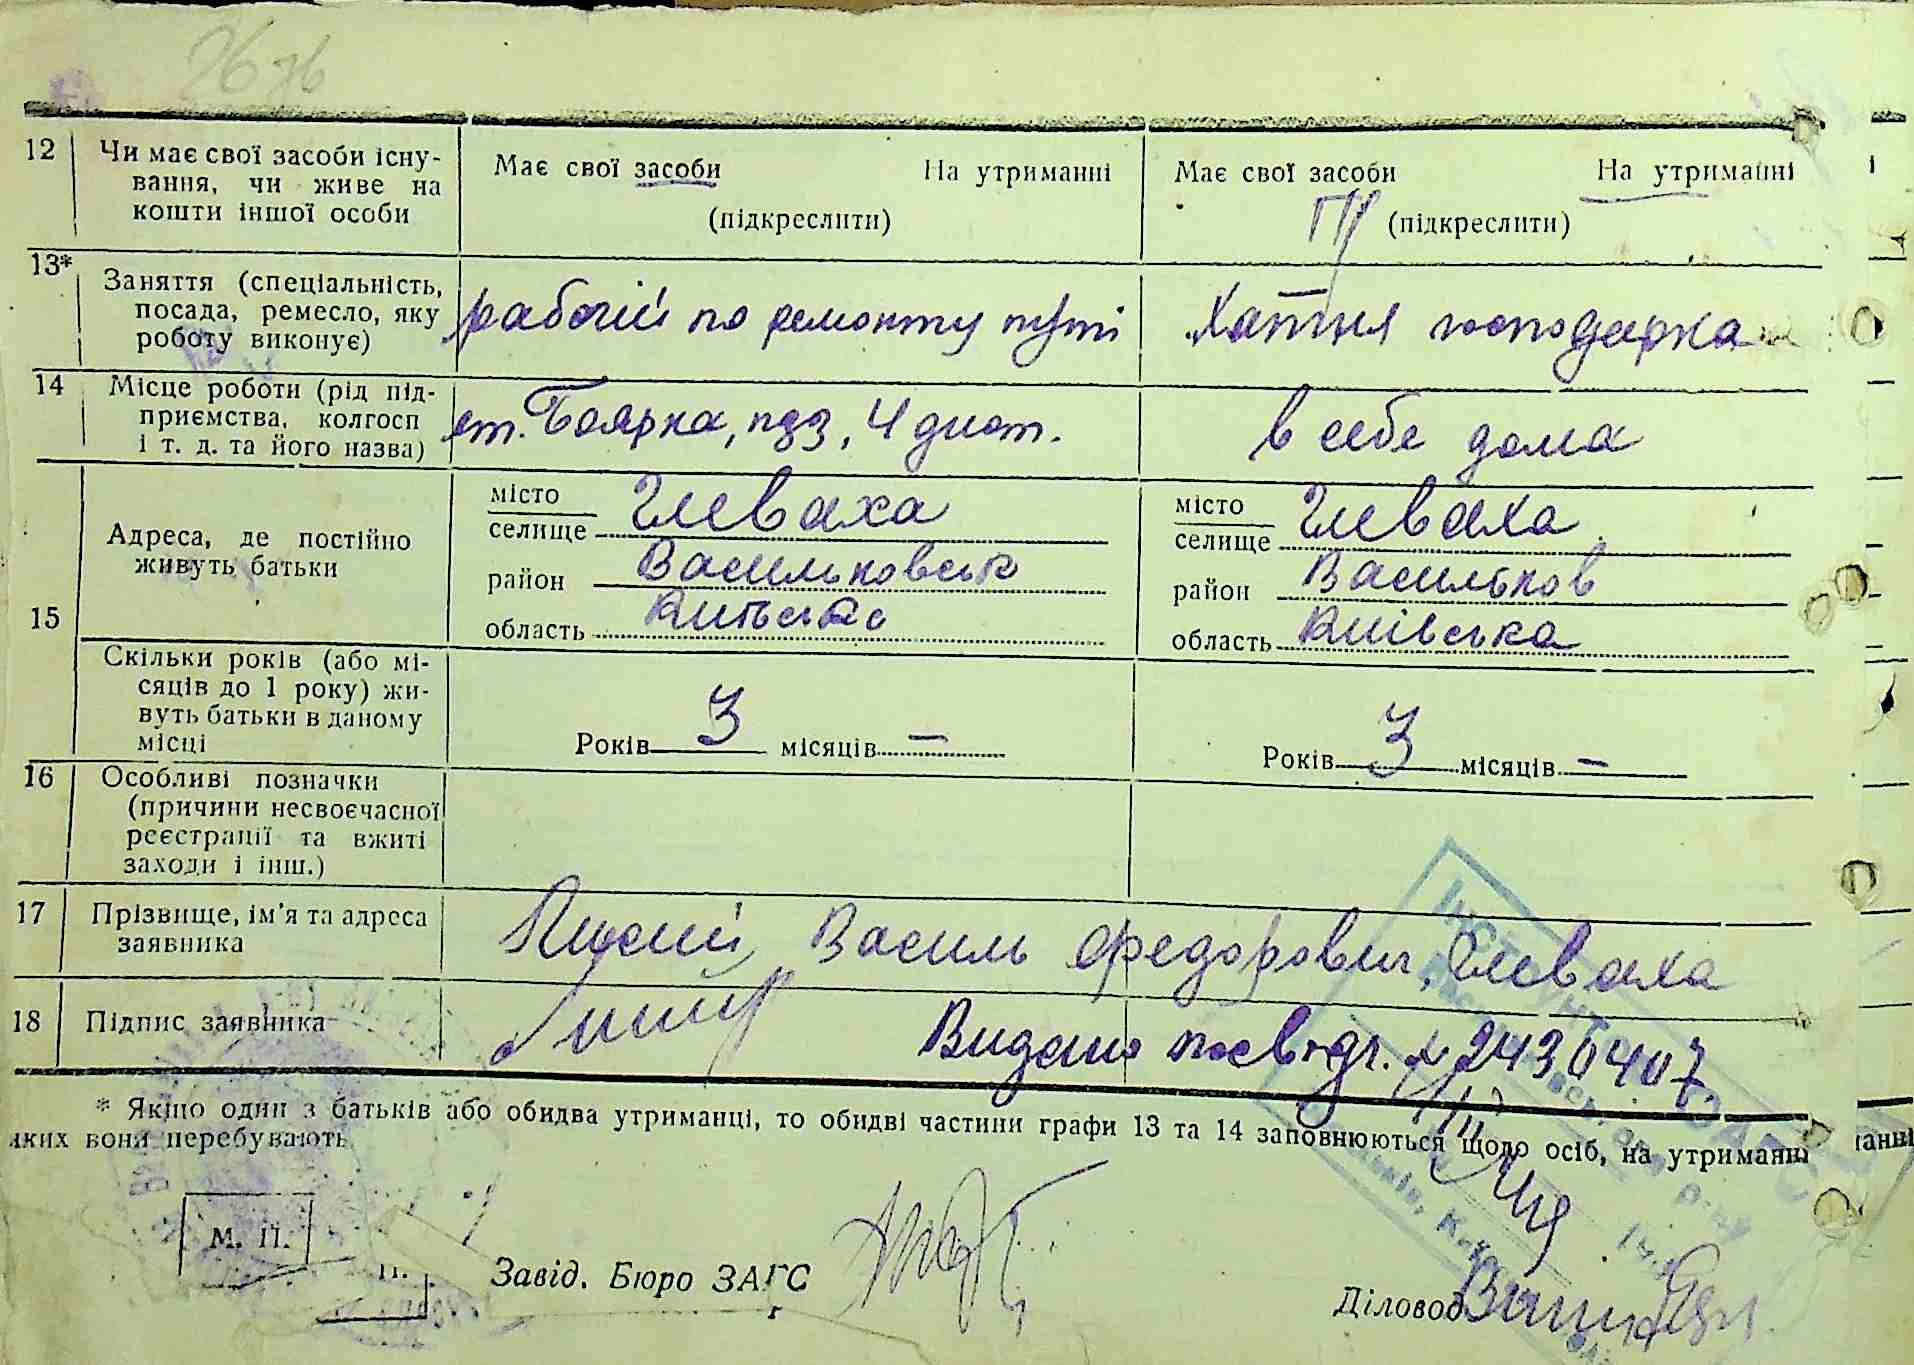 12 Чи має свої засоби існу-
вання, чи живе на
кошти іншої особи
Має свої засоби На утриманні
(підкреслити)
Має свої засоби На утриманні
(підкреслити)
13* Заняття (спеціальність,
посада, ремесло, яку
роботу виконує)
рабочий по ремонту путі
Хатня господарка
14 Місце роботи (рід під-
приємства, колгосп
і т. д. та його назва)
ст. Боярка, пдз, 4 дист.
в себе дома
15 Адреса, де постійно
живуть батьки
місто
селище Глеваха
район Васильковськ
область
місто
селище Глеваха
район Васильков
область Київська
Скільки років (або мі-
сяців до 1 року) жи-
вуть батьки в даному
місці
Років 3 місяців —
Років 3 місяців —
16 Особливі позначки
(причини несвоєчасної
реєстрації та вжиті
заходи і інш.)
17 Прізвище, ім'я та адреса
заявника
Василь Федорович, Глеваха
18 Підпис заявника
Видано посвідч. № 2430407
* Якщо один з батьків або обидва утриманці, то обидві частини графи 13 та 14 заповнюються щодо осіб, на утриманні
яких вони перебувають
М. П.
Завід. Бюро ЗАГС
Діловод